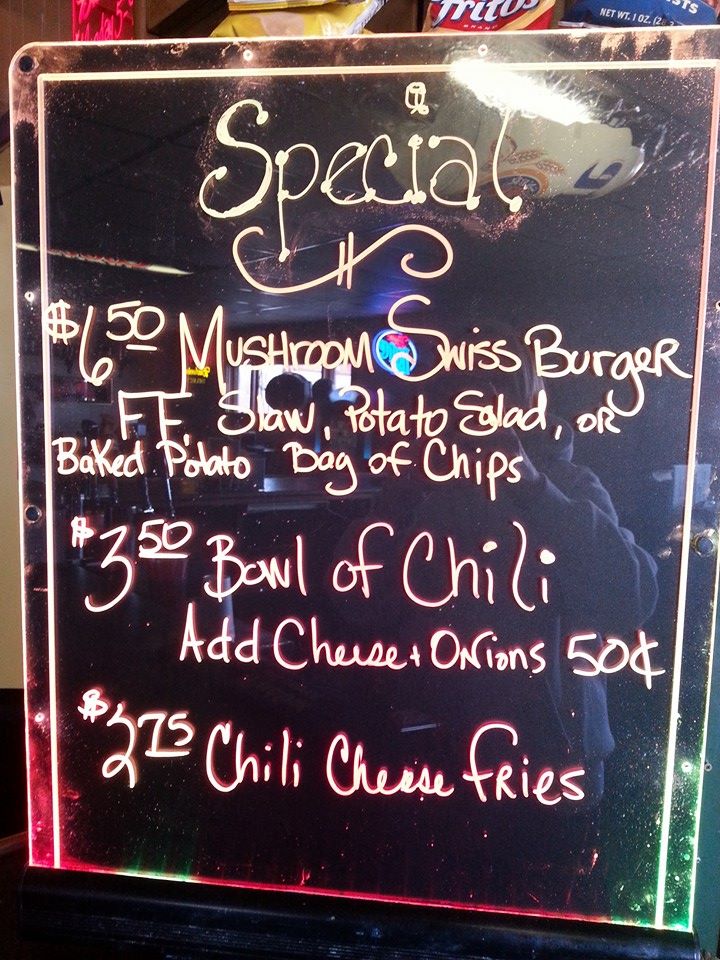 Fritos
BRAND
NET WT. 1 OZ. (28.
Special
$6.50 MUSHROOM SWISS BURGER
FF, Slaw, Potato Salad, OR
Baked Potato Bag of Chips
$3.50 Bowl of Chili
Add Cheese + Onions 50¢
$2.75 Chili Cheese Fries